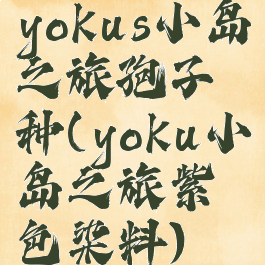 yokus小岛
之旅孢子
种(yoku小
岛之旅紫
色染料)